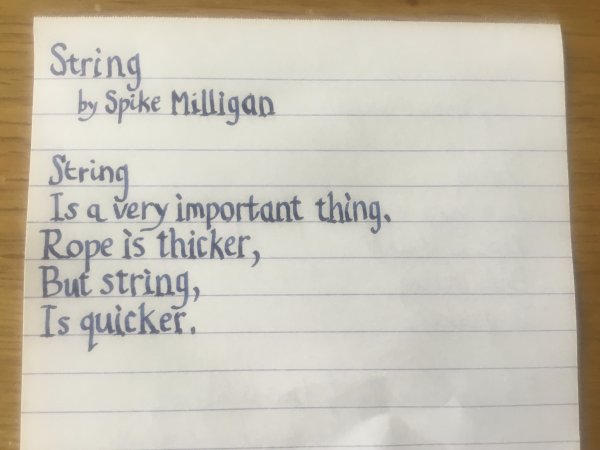 String
by Spike Milligan
String
Is a very important thing.
Rope is thicker,
But string,
Is quicker.